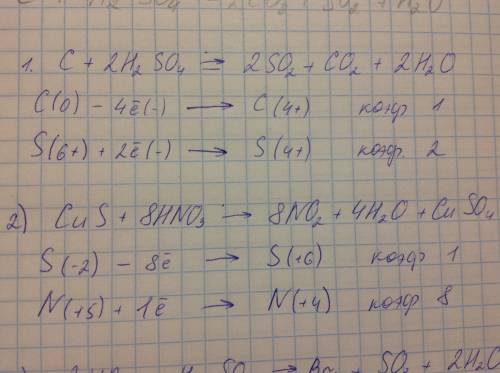 1. C + 2H₂SO₄ = 2SO₂ + CO₂ + 2H₂O
C(0) – 4ē(-) ⟶ C(4+) коэф 1
S(6+) + 2ē(-) ⟶ S(4+) коэф. 2
2) CuS + 8HNO₃ → 8NO₂ + 4H₂O + CuSO₄
S(-2) – 8ē → S(+6) коэф 1
N(+5) + 1ē → N(+4) коэф 8
SO₂ + 2H₂O